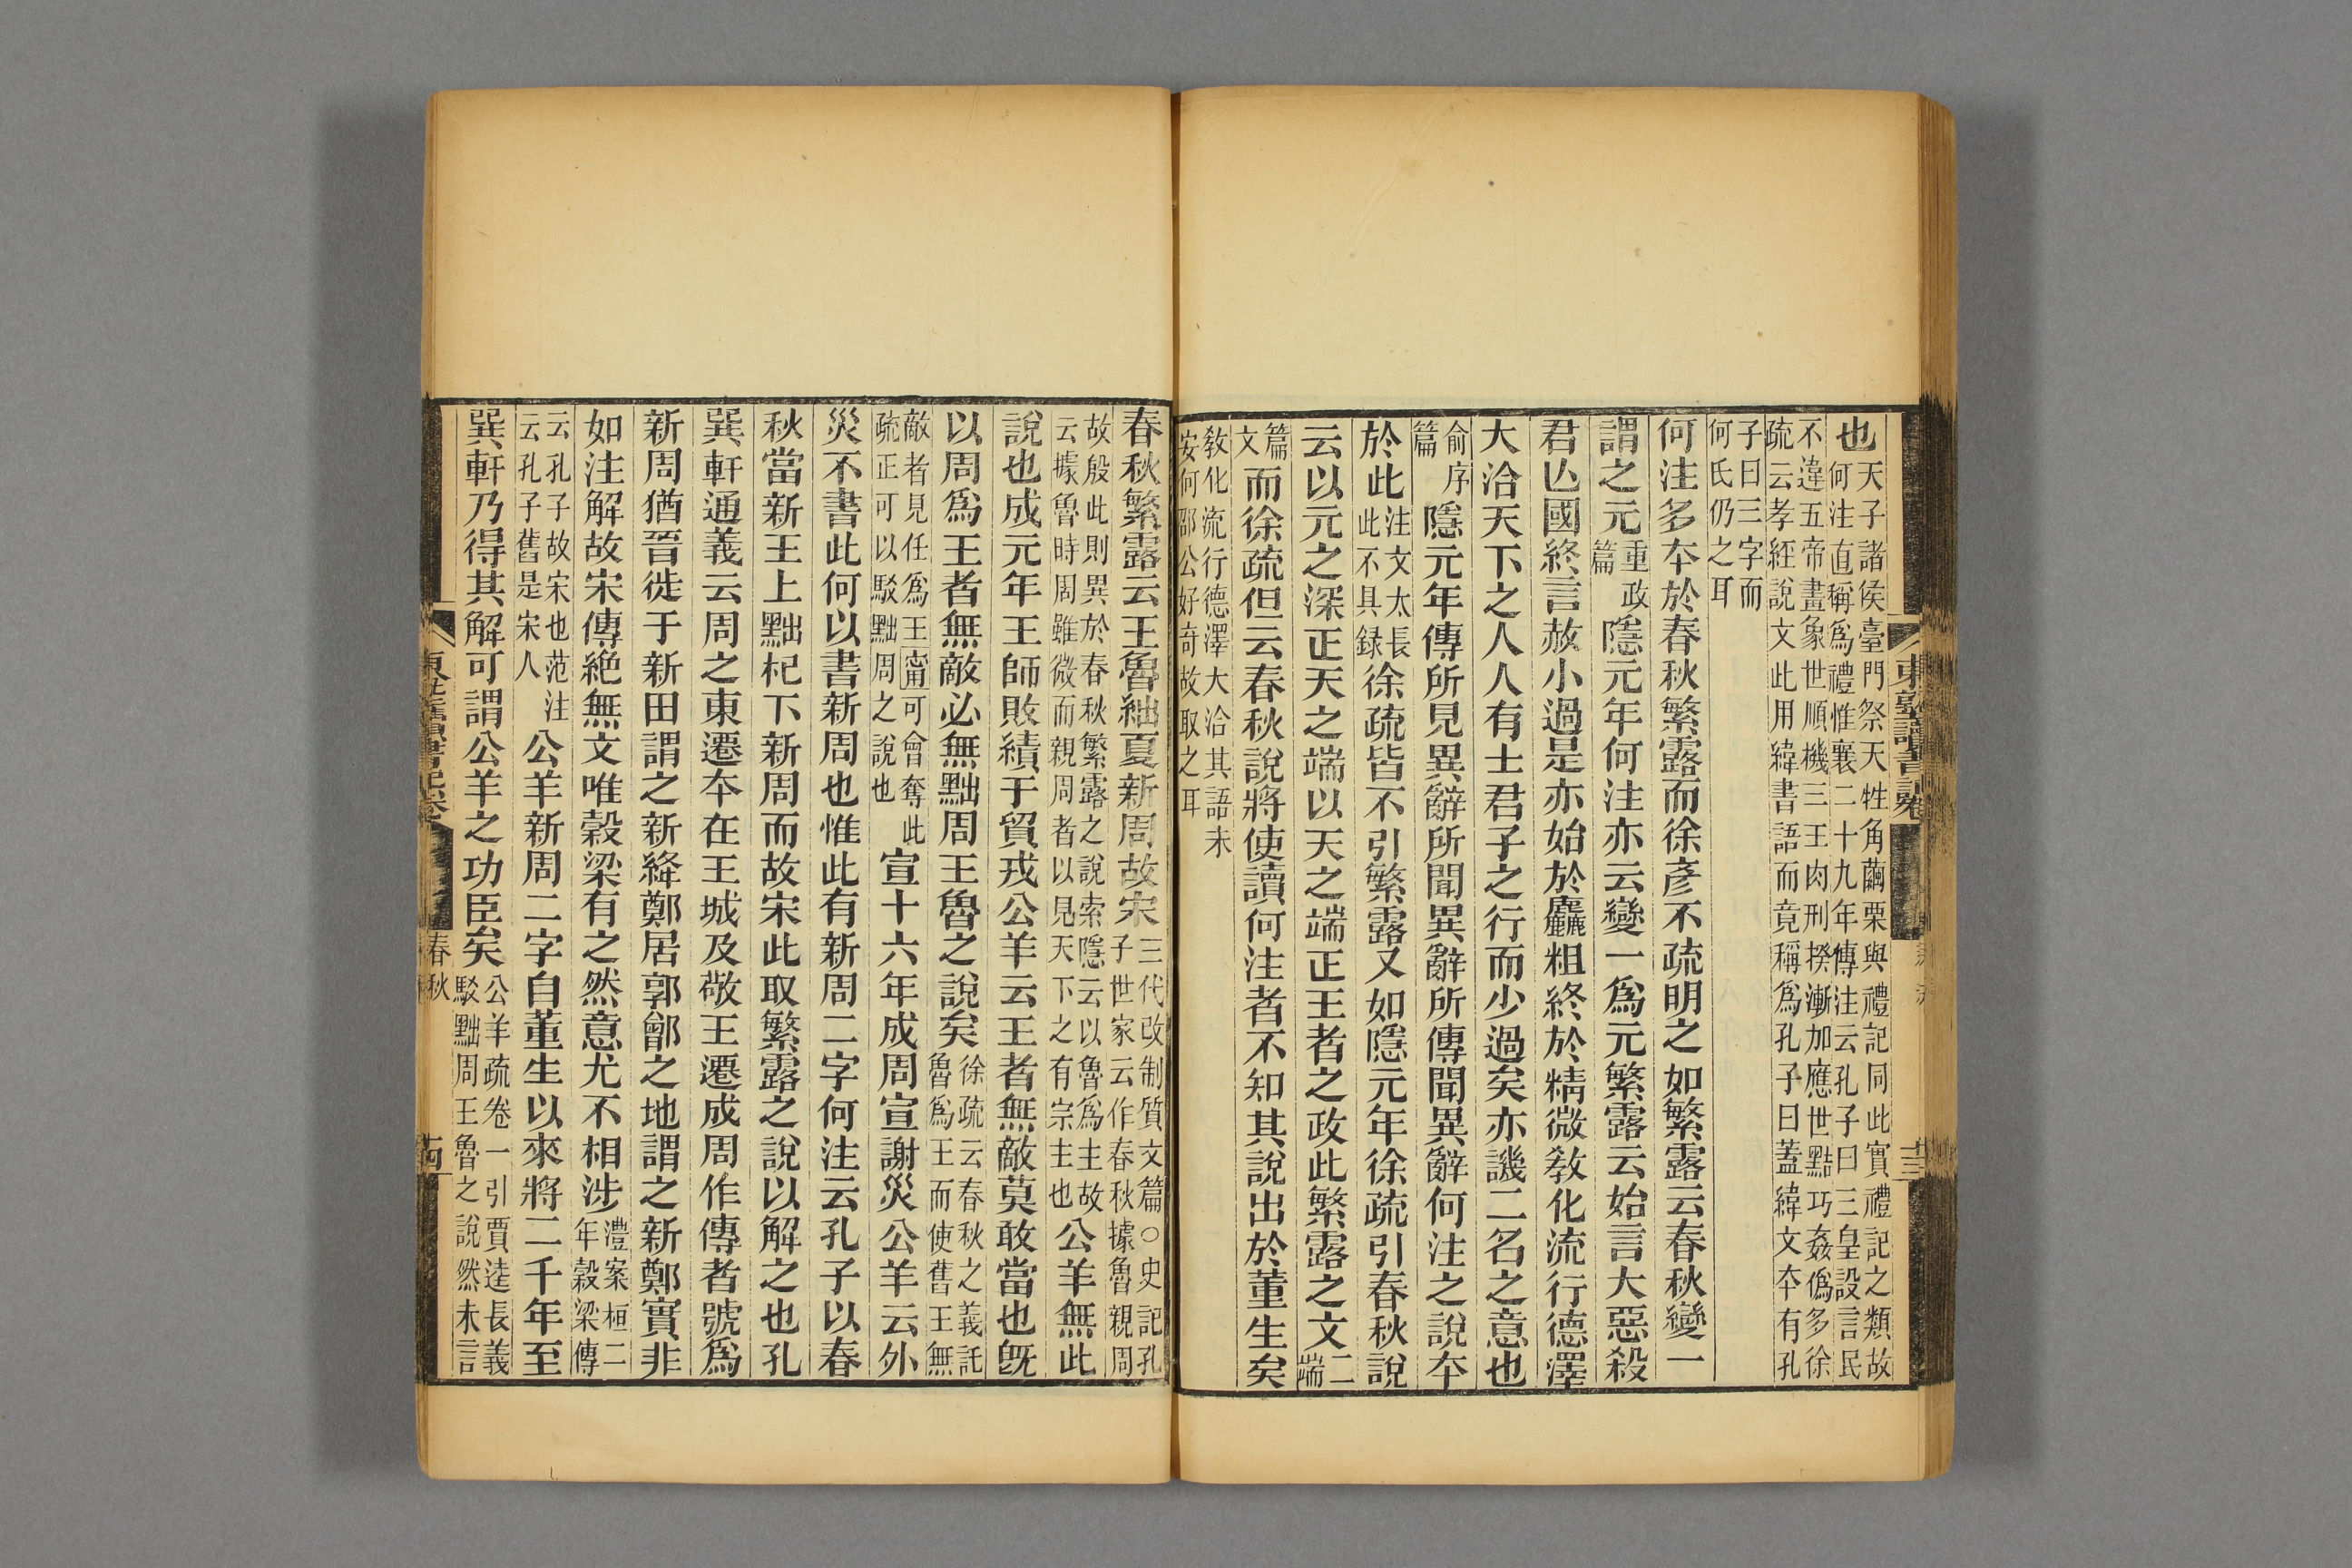 東塾讀書記卷
十三
也天子諸侯臺門祭天牲角繭栗與禮記同此實禮記之類故
何注直稱爲禮惟襄二十九年傳注云孔子曰三皇設言民
不違五帝畫象世順機三王肉刑揆漸加應世黠巧姦僞多徐
疏云孝經說文此用緯書語而竟稱爲孔子曰蓋緯文夲有孔
子曰三字而
何氏仍之耳
何注多夲於春秋繁露而徐彥不疏明之如繁露云春秋變一
謂之元重政篇隱元年何注亦云變一爲元繁露云始言大惡殺
君亾國終言赦小過是亦始於麤粗終於精微敎化流行德澤
大洽天下之人人有士君子之行而少過矣亦譏二名之意也
俞序篇隱元年傳所見異辭所聞異辭所傳聞異辭何注之說夲
於此注文太長此不具録徐疏皆不引繁露又如隱元年徐疏引春秋說
云以元之深正天之端以天之端正王者之政此繁露之文二端
篇文而徐疏但云春秋說將使讀何注者不知其說出於董生矣
敎化流行德澤大洽其語未
安何邵公好奇故取之耳
春秋繁露云王魯紬夏新周故宋三代改制質文篇○史記孔子世家云作春秋據魯親周
故殷此則異於春秋繁露之說索隱云以魯爲主故云據魯時周雖微而親周者以見天下之有宗主也公羊無此
說也成元年王師敗績于貿戎公羊云王者無敵莫敢當也旣
以周爲王者無敵必無黜周王魯之說矣徐疏云春秋之義託魯爲王而使舊王無
敵者見任爲王甯可會奪此疏正可以駁黜周之說也宣十六年成周宣謝災公羊云外
災不書此何以書新周也惟此有新周二字何注云孔子以春
秋當新王上黜杞下新周而故宋此取繁露之說以解之也孔
巽軒通義云周之東遷夲在王城及敬王遷成周作傳者號爲
新周猶晉徙于新田謂之新絳鄭居郭鄶之地謂之新鄭實非
如注解故宋傳絶無文唯穀梁有之然意尤不相涉澧案桓二年穀梁傳
云孔子故宋也范注云孔子舊是宋人公羊新周二字自董生以來將二千年至
巽軒乃得其解可謂公羊之功臣矣公羊疏卷一引賈逵長義駁黜周王魯之說然未言
東塾讀書記卷
春秋
古